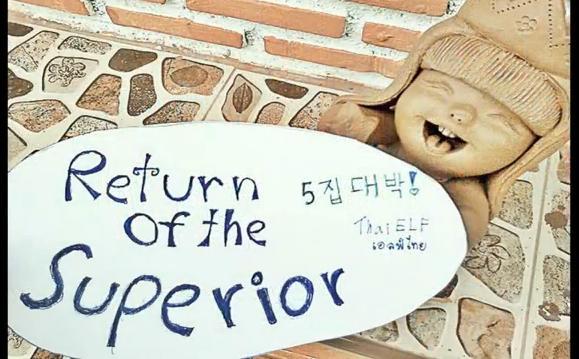 Return
Of the
Superior
5집 대박!
Thai ELF
เอลฟ์ไทย